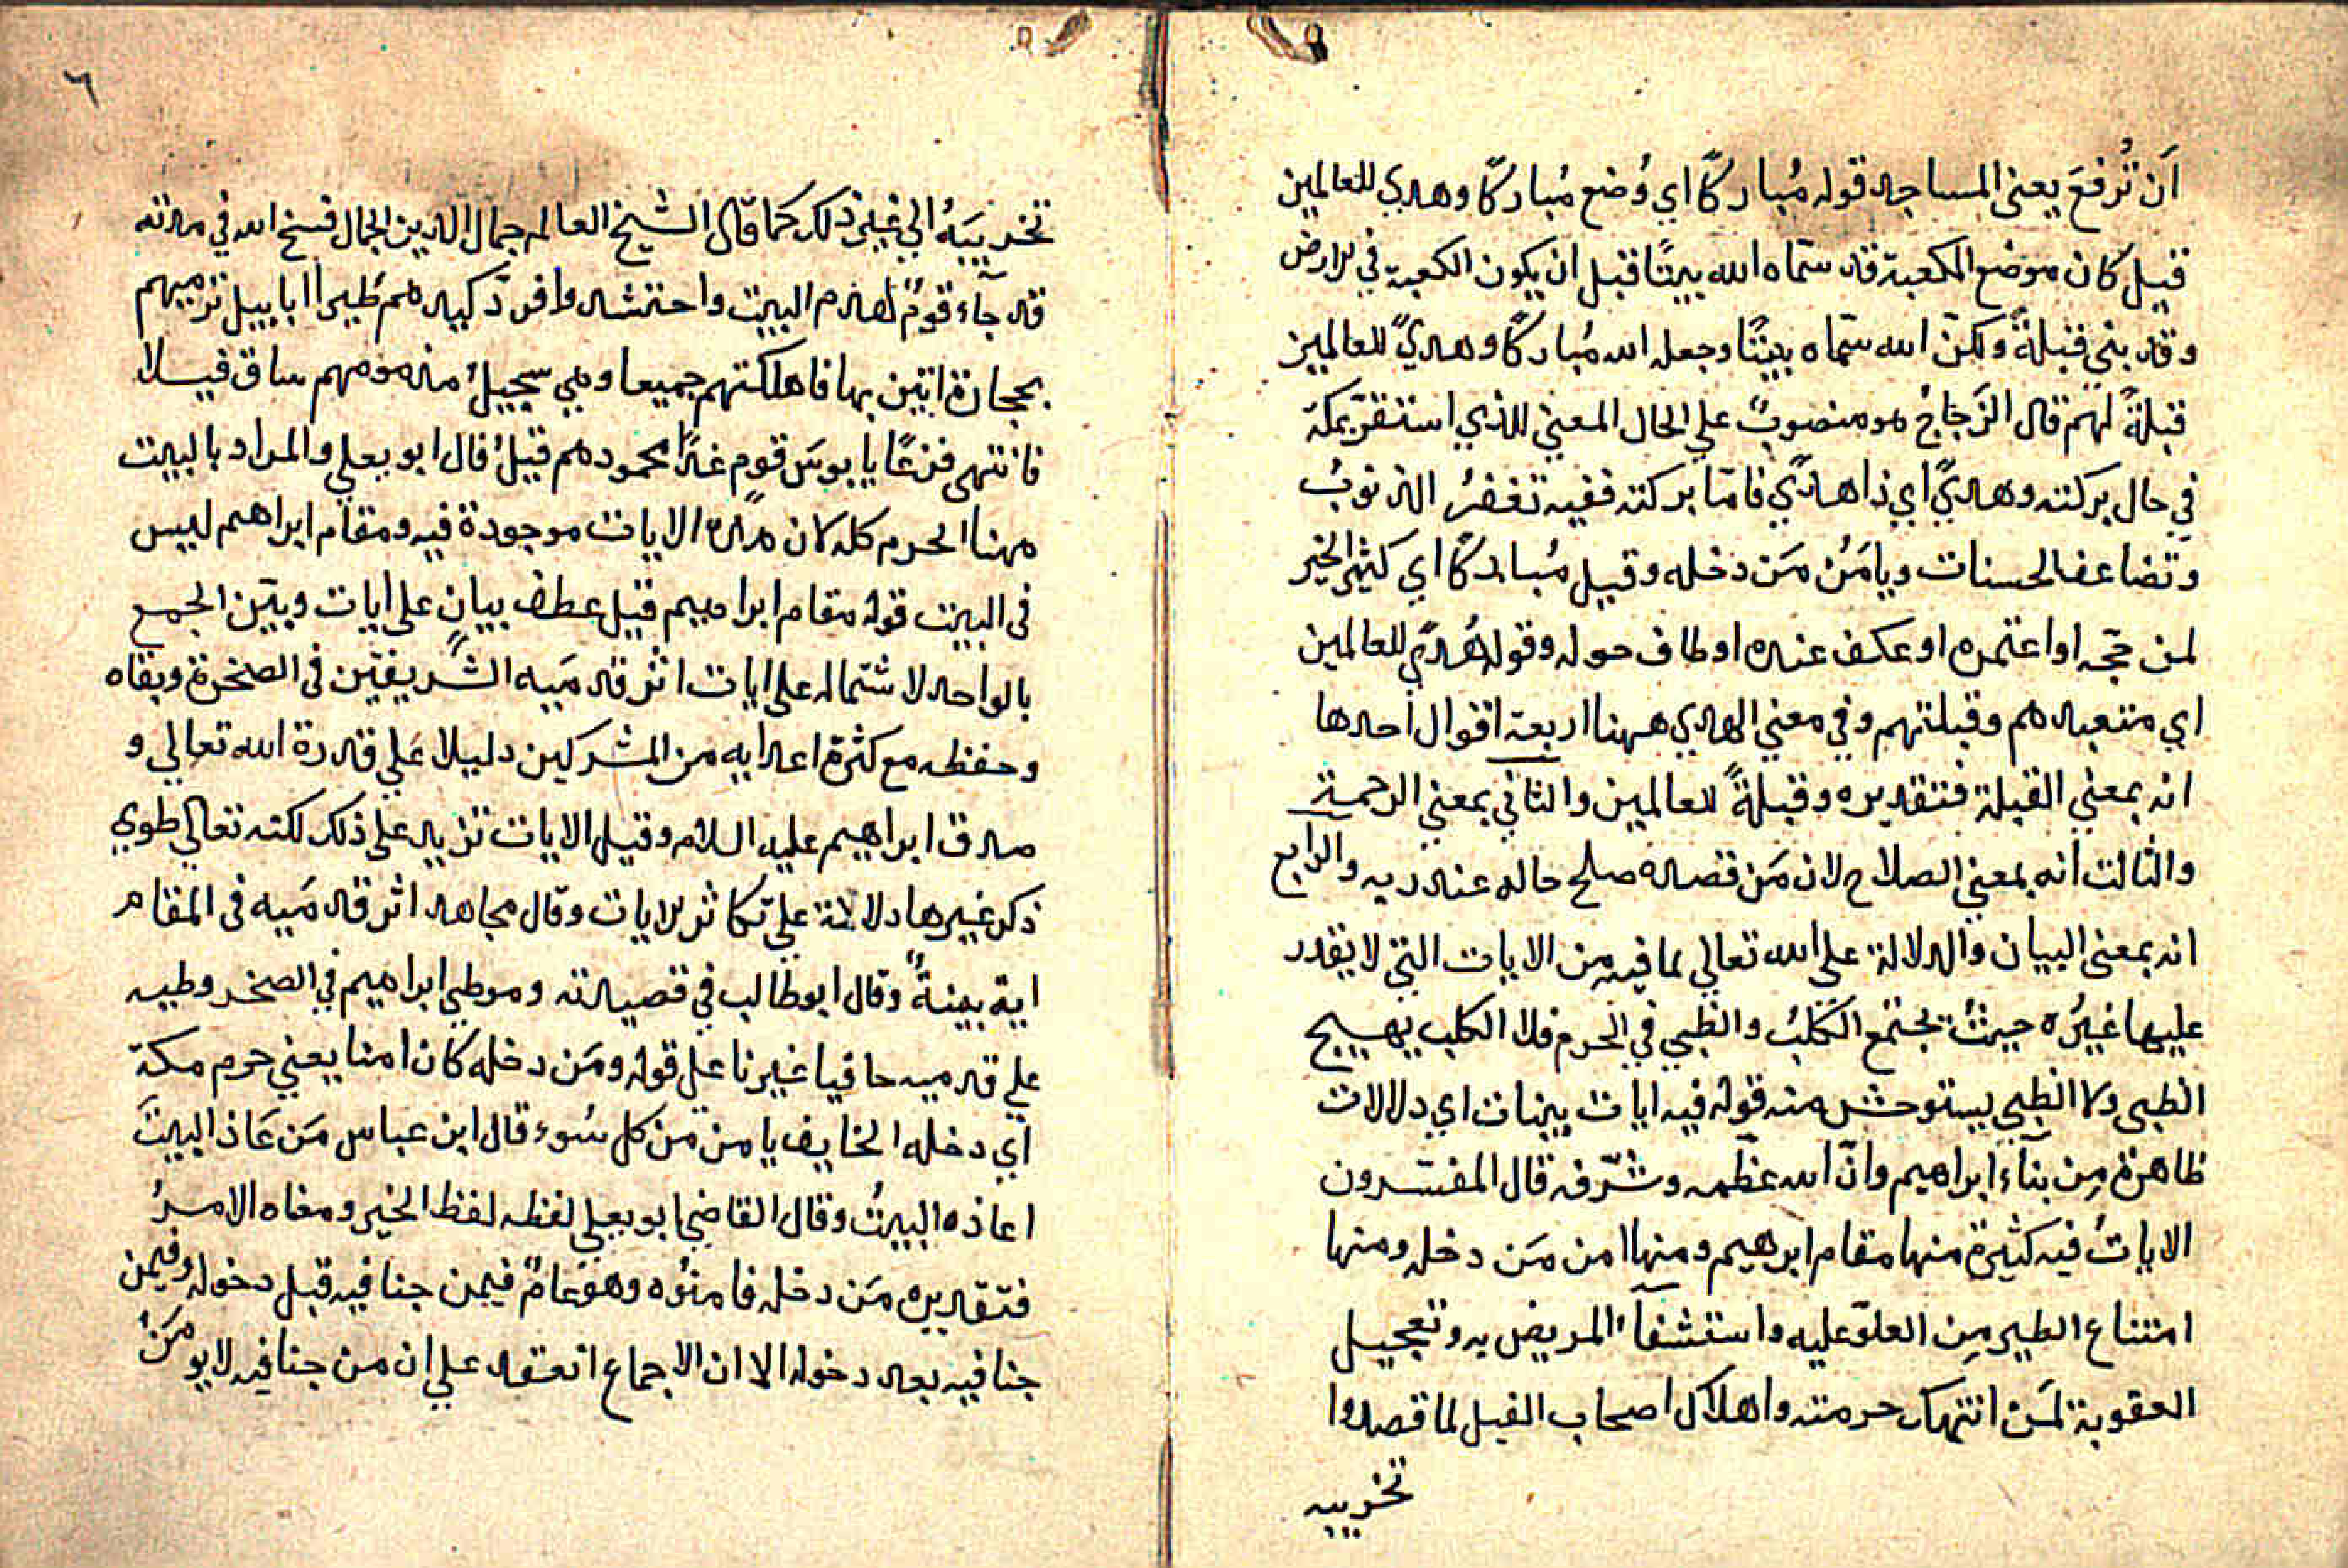 اَن تُرفعَ يعنى المساجد قوله مُباركًا اي وُضع مُباركًا وهدي للعالمين
قيل كان موضع الكعبة قد سمّاه الله بيتًا قبل ان يكون الكعبة في الارض
وقد بني قبلةً ولكنّ الله سمّاه بيتًا وجعله الله مُباركًا وهديً للعالمين
قبلةً لهم قال الزَجاجُ هو منصوبٌ علي الحال المعني للذي استقرّ بمكة
في حال بركته وهديً اي ذا هديً فامّا بركته ففيه تغفرُ الذنوبُ
وتضاعف الحسنات ويامَنُ مَن دخله وقيل مُباركًا اي كثير الخير
لمن حجّه او اعتمره او عكف عنده او طاف حوله وقوله هُديً للعالمين
اي متعبدهم وقبلتهم وفي معني الهدي ههنا اربعة اقوال احدها
انه بمعني القبلة فتقديره وقبلةً للعالمين والثاني بمعني الرحمة
والثالث انه بمعني الصلاح لان مَن قصده صلح حاله عند ربه والرابع
انه بمعنى البيان والدلالة على الله تعالي لما فيه من الايات التي لا يقدر
عليها غيرُه حيثُ يجتمع الكَلبُ والظبي في الحرم فلا الكلب يهيج
الظبى ولا الظبي يستوحش منه قوله فيه ايات بينات اي دلالات
ظاهرة مِن بنآء ابراهيم وانّ الله عظّمه وشرّفه قال المفسّرون
الاياتُ فيه كثيرة منها مقام ابرهيم ومنها امن مَن دخله ومنها
امتناع الطير مِن العلوّ عليه واستشفآء المريض به وتعجيل
العقوبة لمَن انتهك حرمته واهلاك اصحاب الفيل لما قصدوا
تخريبه
٦
تخريبَهُ الي غير ذلك كما قال الشيخ العالم جمال الدين الجمال فسح الله في مدته
قد جآء قومٌ لهدم البيت واحتشدوا فردّ كيدهم طيرا ابابيل ترميهم
بحجارة اتين بها فاهلكتهم جميعا وهي سجيلُ منه ومهم ساق فيلا
فانتهى فزعًا يا بوسَ قوم غدًا محمودهم قيلُ قال ابو يعلي والمراد بالبيت
ههنا الحرم كله لان هذه الايات موجودة فيه ومقام ابراهيم ليس
فى البيت قوله مقام ابراهيم قيل عطف بيان على ايات وبيّن الجمع
بالواحد لاشتماله على ايات اثر قدمَيه الشريفين فى الصخرة وبقاه
وحفظه مع كثرة اعدايه من المشركين دليلا عَلي قدرة الله تعالي و
صدق ابراهيم عليه السلام وقيل الايات تزيد على ذلك لكنه تعالي طوي
ذكر غيرها دلالة علي تكاثر الايات وقال مجاهد اثر قدمَيه فى المقام
اية بينةً وقال ابو طالب في قصيدته وموطي ابراهيم في الصخر وطيه
علي قدميه حافيا غير ناعل قوله ومَن دخله كان امنا يعني حرم مكة
اي دخله الخايف يامن من كل سُوء قال ابن عباس مَن عَاذ البيتَ
اعاذه البيتُ وقال القاضي ابو يعلي لفظه لفظ الخبر ومعناه الامرُ
فتقديره مَن دخله فامنوُه وهو عامٌ فيمن جنا فيه قبل دخوله وفيمن
جنا فيه بعد دخوله الا ان الاجماع انعقد علي ان من جنا فيه لا يومَنُ